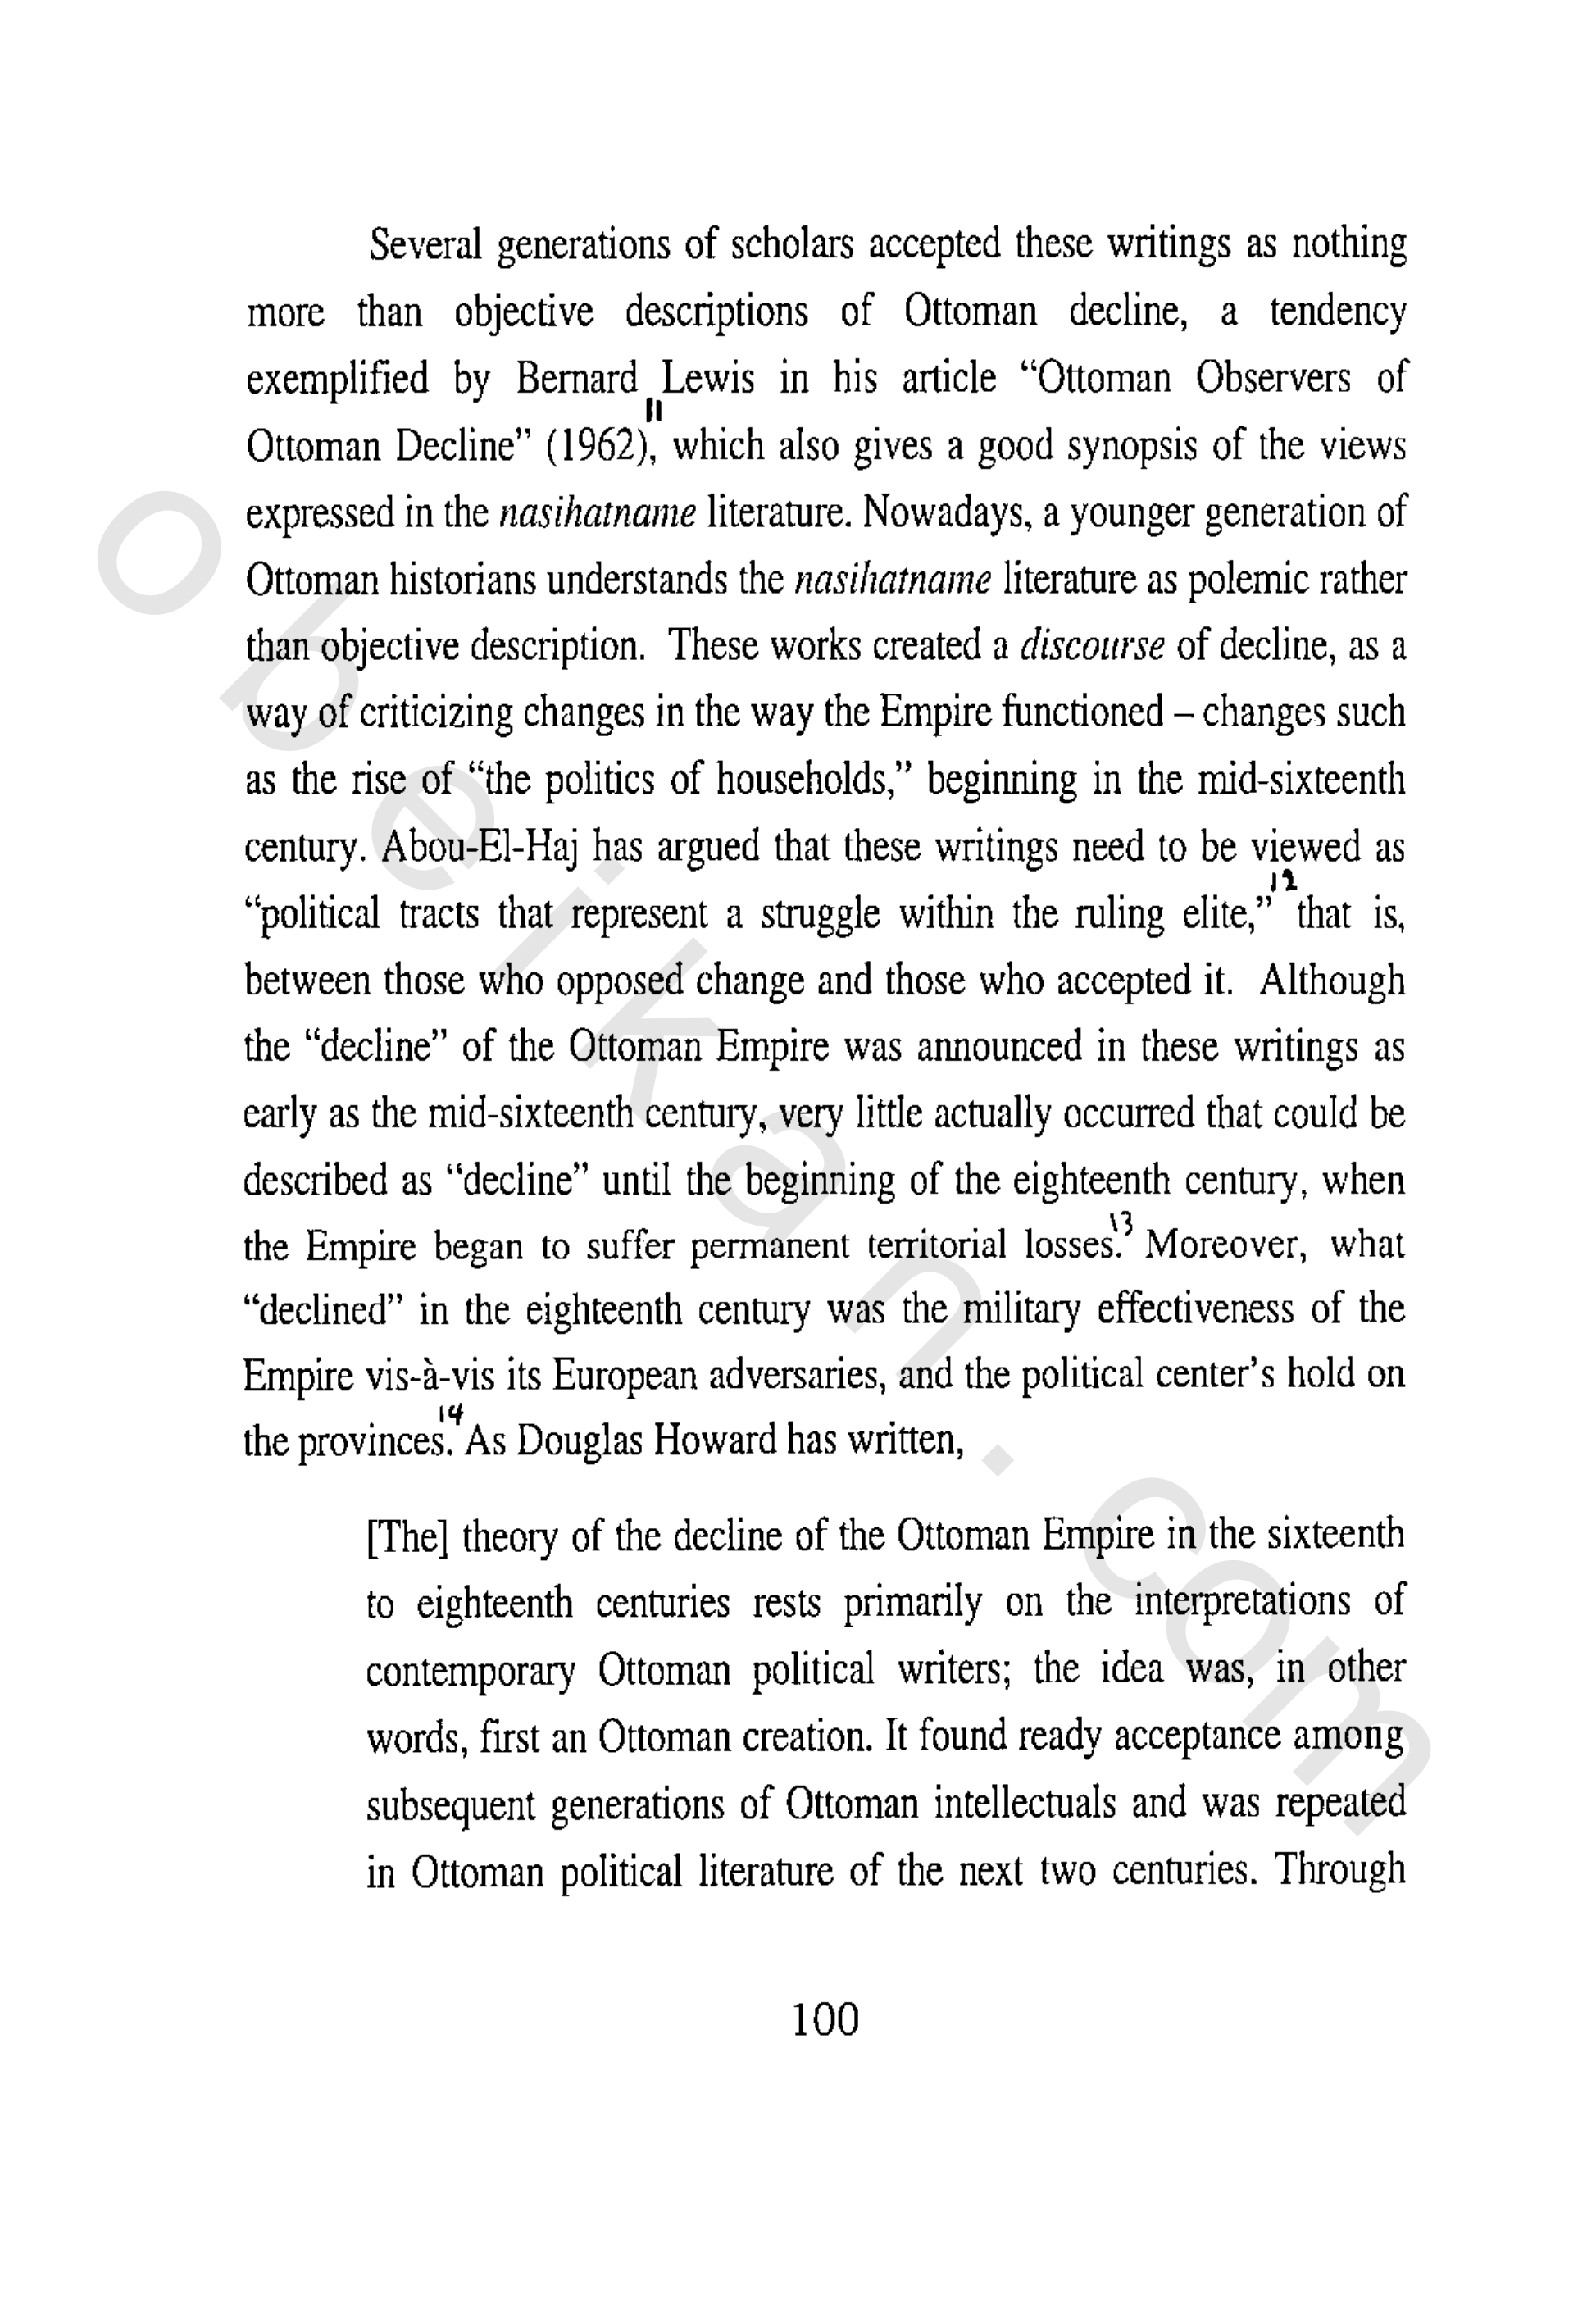 Several generations of scholars accepted these writings as nothing
more than objective descriptions of Ottoman decline, a tendency
exemplified by Bernard Lewis in his article “Ottoman Observers of
Ottoman Decline” (1962),11 which also gives a good synopsis of the views
expressed in the nasihatname literature. Nowadays, a younger generation of
Ottoman historians understands the nasihatname literature as polemic rather
than objective description. These works created a discourse of decline, as a
way of criticizing changes in the way the Empire functioned – changes such
as the rise of “the politics of households,” beginning in the mid-sixteenth
century. Abou-El-Haj has argued that these writings need to be viewed as
“political tracts that represent a struggle within the ruling elite,”12 that is,
between those who opposed change and those who accepted it. Although
the “decline” of the Ottoman Empire was announced in these writings as
early as the mid-sixteenth century, very little actually occurred that could be
described as “decline” until the beginning of the eighteenth century, when
the Empire began to suffer permanent territorial losses.13 Moreover, what
“declined” in the eighteenth century was the military effectiveness of the
Empire vis-à-vis its European adversaries, and the political center’s hold on
the provinces.14 As Douglas Howard has written,
[The] theory of the decline of the Ottoman Empire in the sixteenth
to eighteenth centuries rests primarily on the interpretations of
contemporary Ottoman political writers; the idea was, in other
words, first an Ottoman creation. It found ready acceptance among
subsequent generations of Ottoman intellectuals and was repeated
in Ottoman political literature of the next two centuries. Through
100
obeikan.com